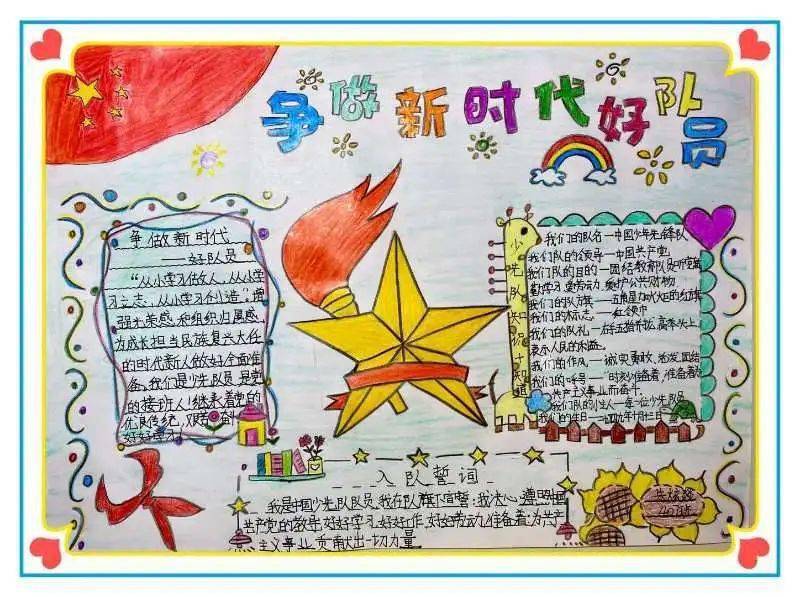 争做新时代好队员
争做新时代
——好队员
“从小学习做人,从小学
习立志,从小学习创造”,增
强光荣感和组织归属感,
为成长担当民族复兴大任
的时代新人做好全面准
备。我们是少先队员,是党
的接班人!继承着党的
优良传统,艰苦奋
好好学习!
少先队知识
我们的队名—中国少年先锋队
我们队的领导—中国共产党
我们队的目的—团结教育队员听党话
勤学习,爱劳动,爱护公共财物
我们的队旗—五角星加火炬的红旗
我们的标志—红领巾
我们的队礼—右手五指并拢,高举头上
表示人民的利益。
我们的作风—诚实勇敢、活泼、团结
我们的呼号—“时刻准备着,准备着为
共产主义事业而奋斗。
我们队的创立人—
我们的生日—一九四九年十月十三日
入队誓词
我是中国少先队队员。我在队旗下宣誓:我决心遵照中国
共产党的教导,好好学习,好好工作,好好劳动,准备着:为共产
主义事业,贡献出一切力量